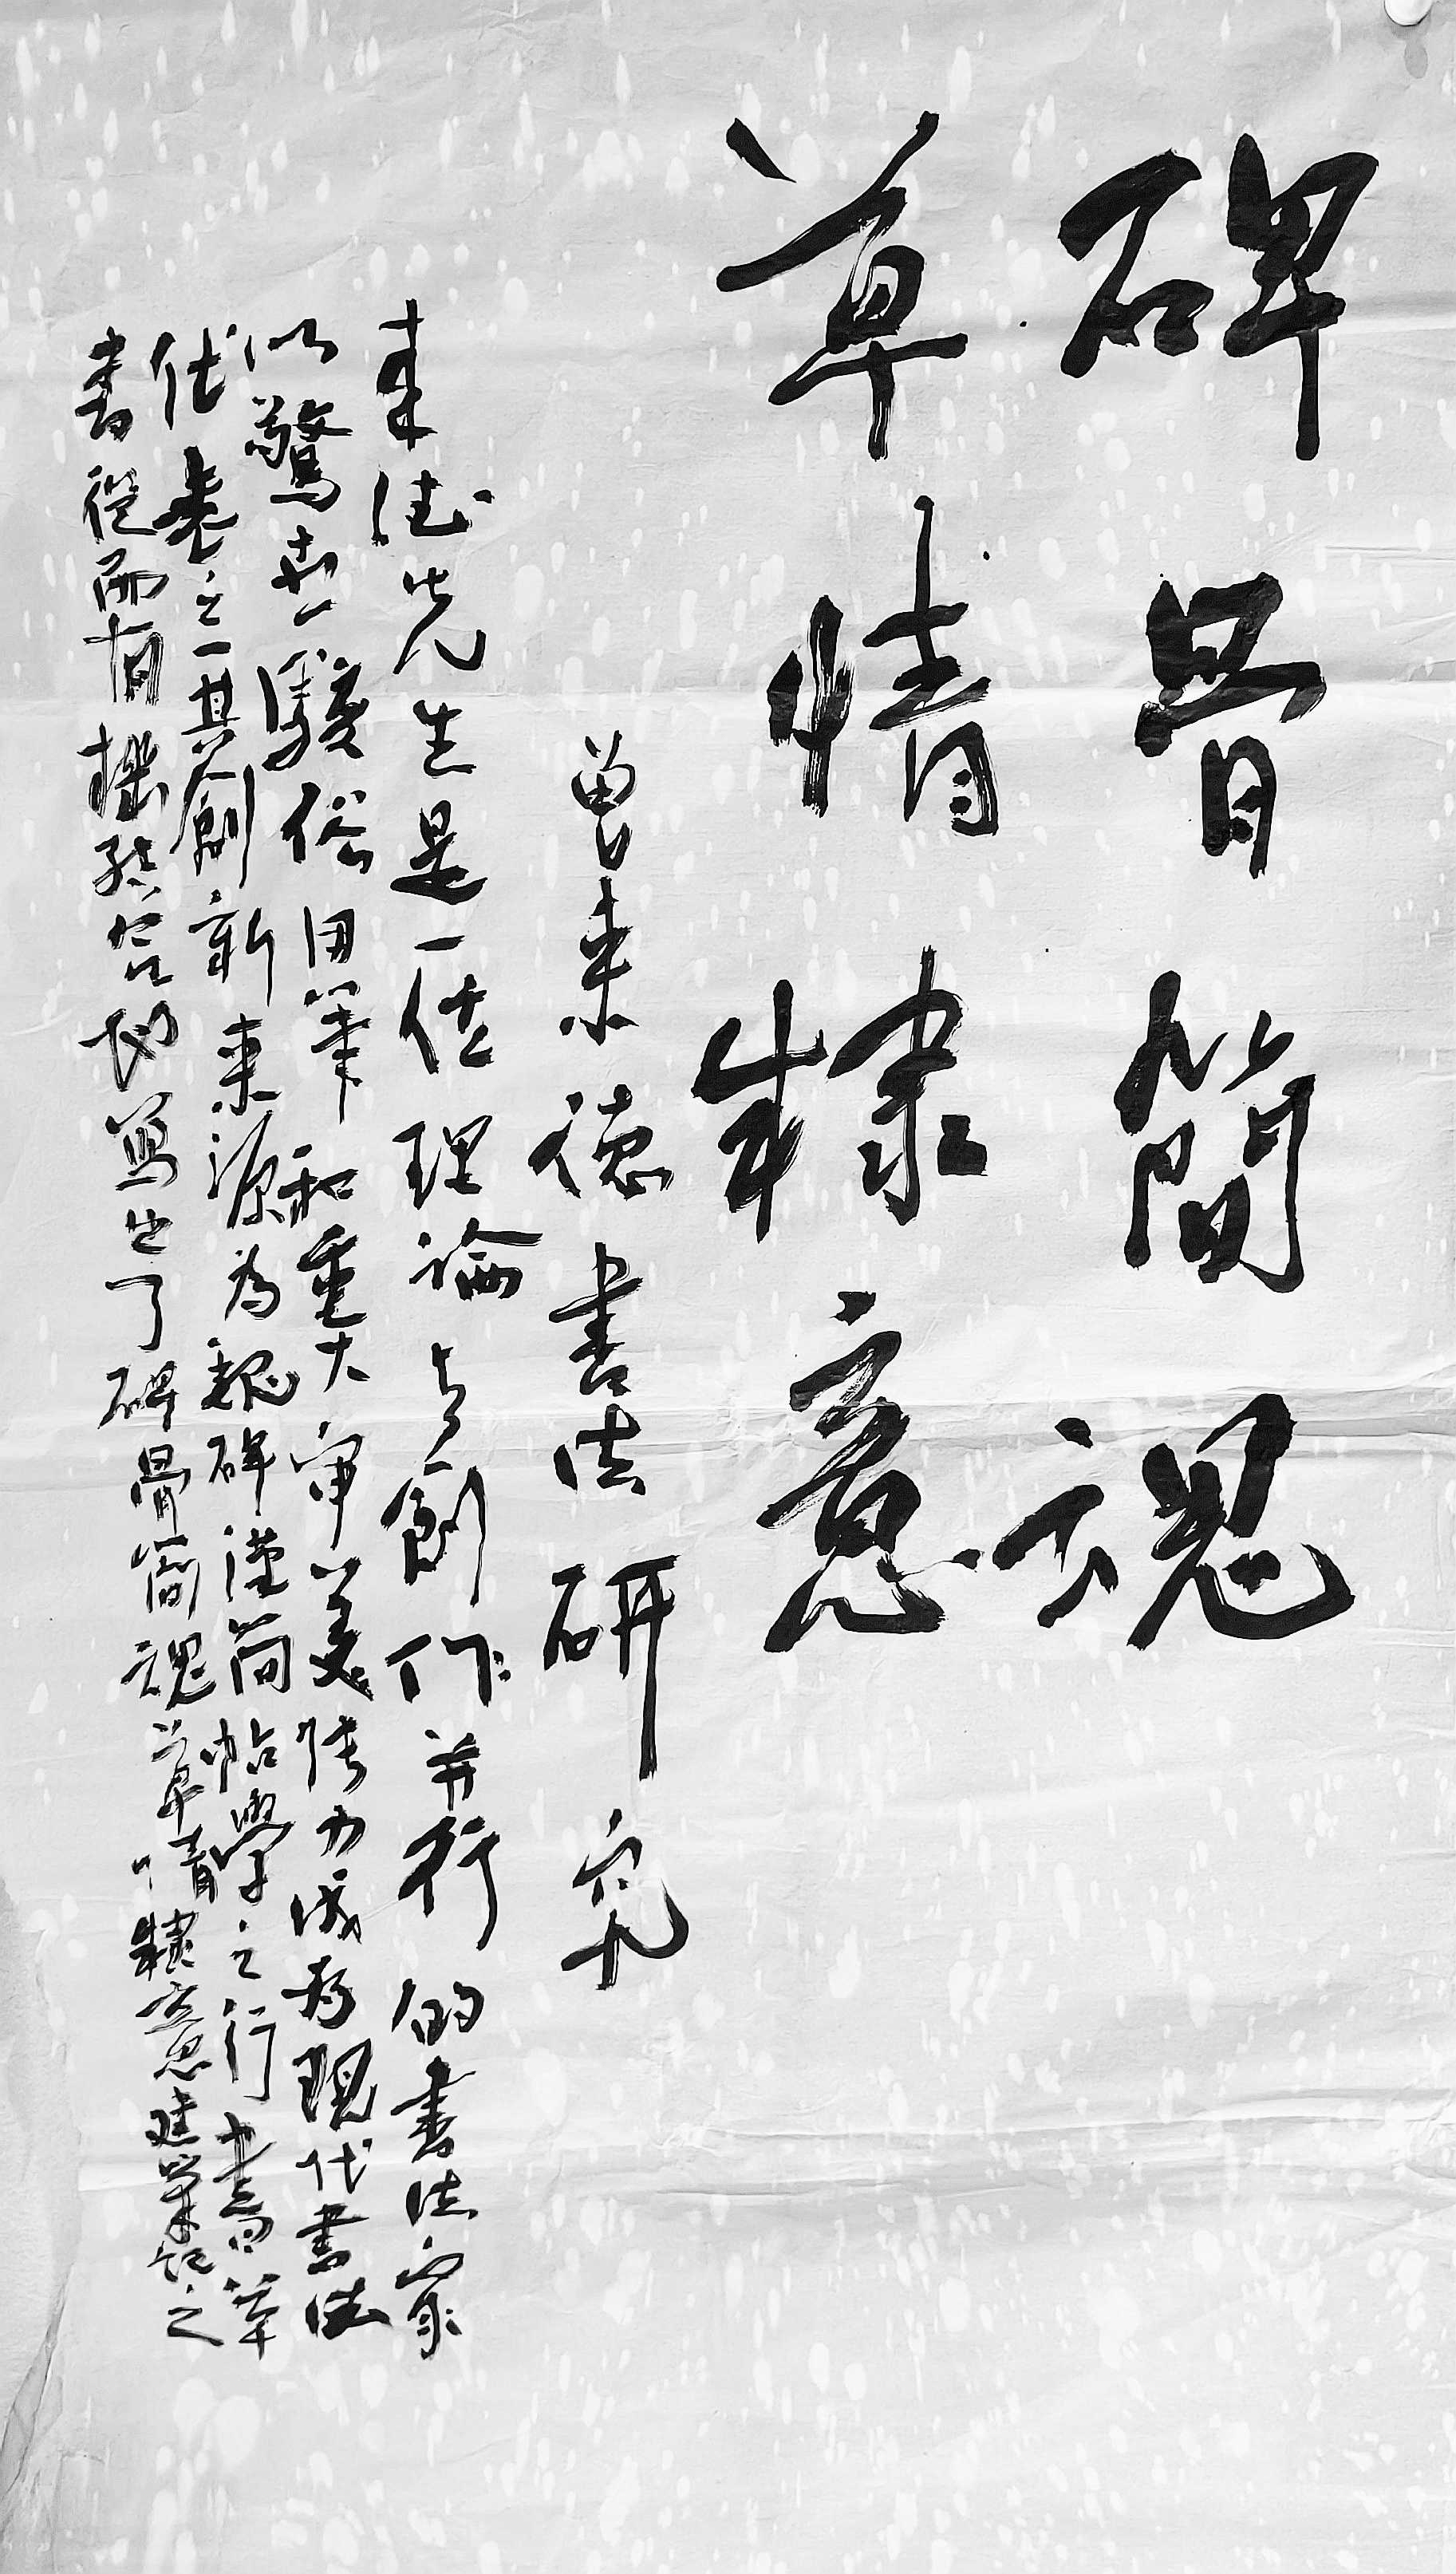 碑骨簡魂
草情隸意
曾来德書法研究
来德先生是一位理論与創作并行的書法家
以驚世駭俗用筆和重大审美張力成为現代書法
代表之一其創新来源为魏碑漢简帖學之行書草
書從而有機结合地写出了碑骨简魂草情隸意建業記之